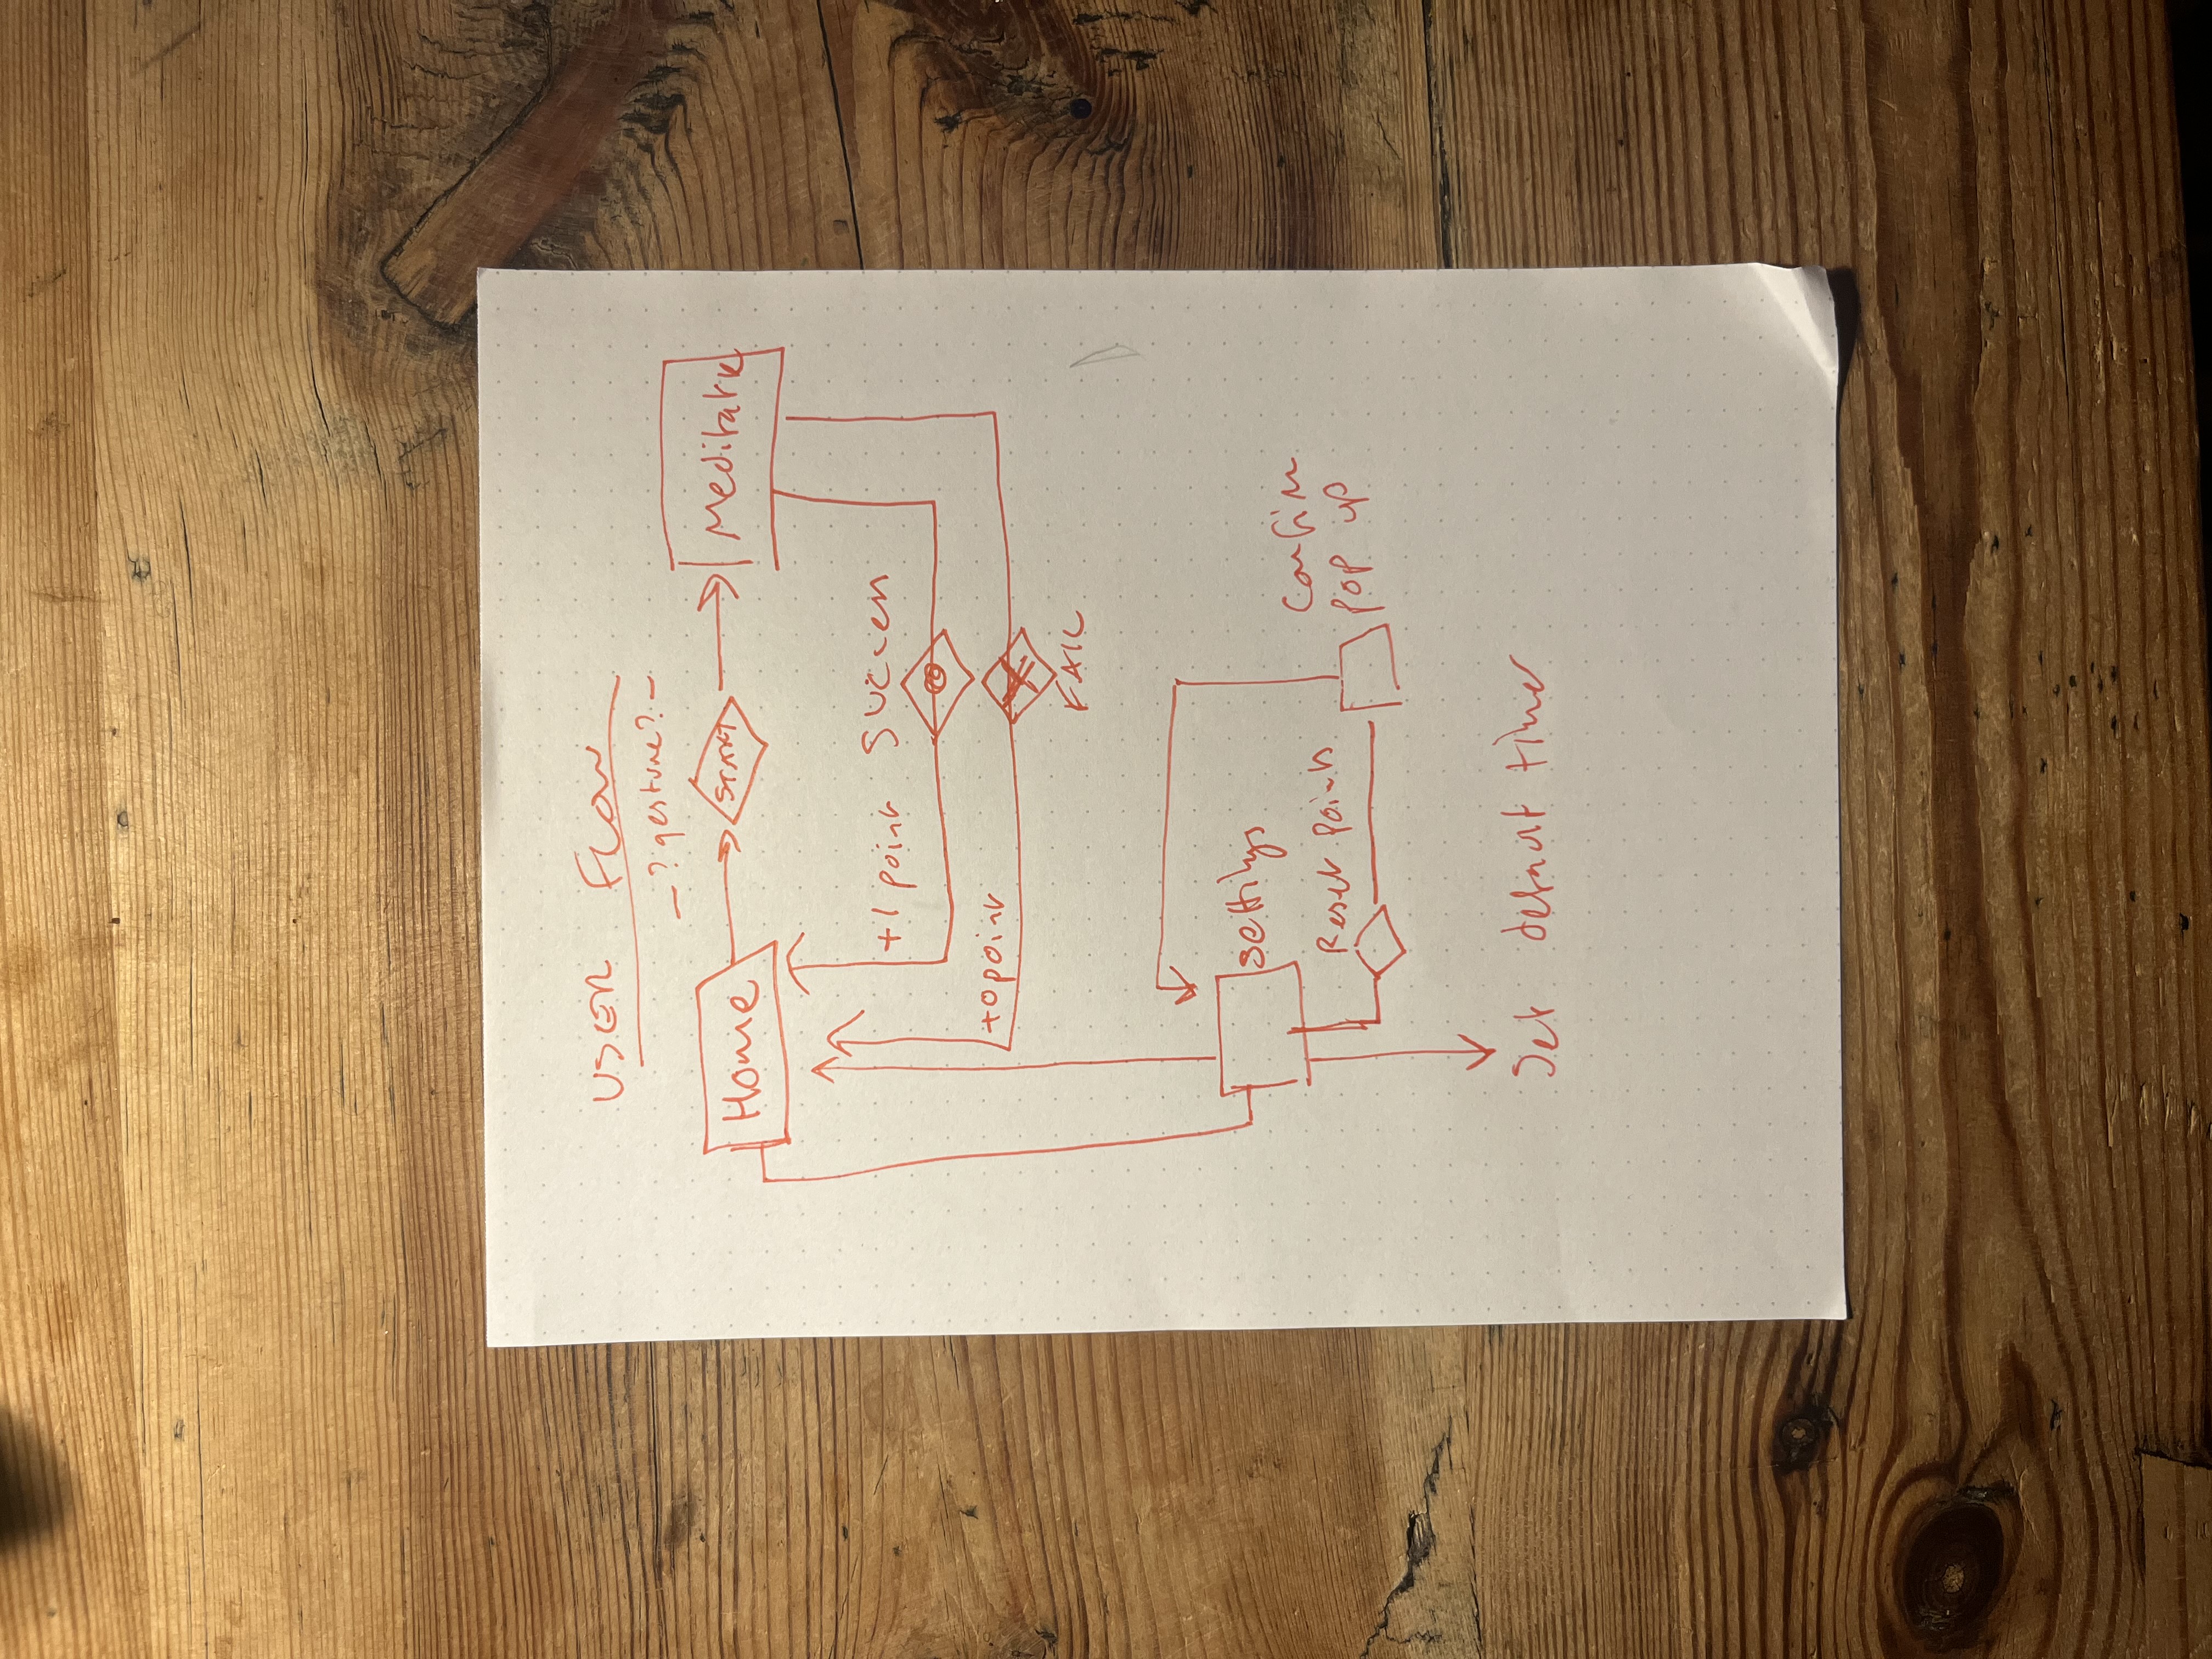 USER FLOW
- ? gesture? -
Home
START
Meditate
+1 point
Success
+0 point
FAIL
Settings
Reset Points
Confirm
pop up
Set default timer